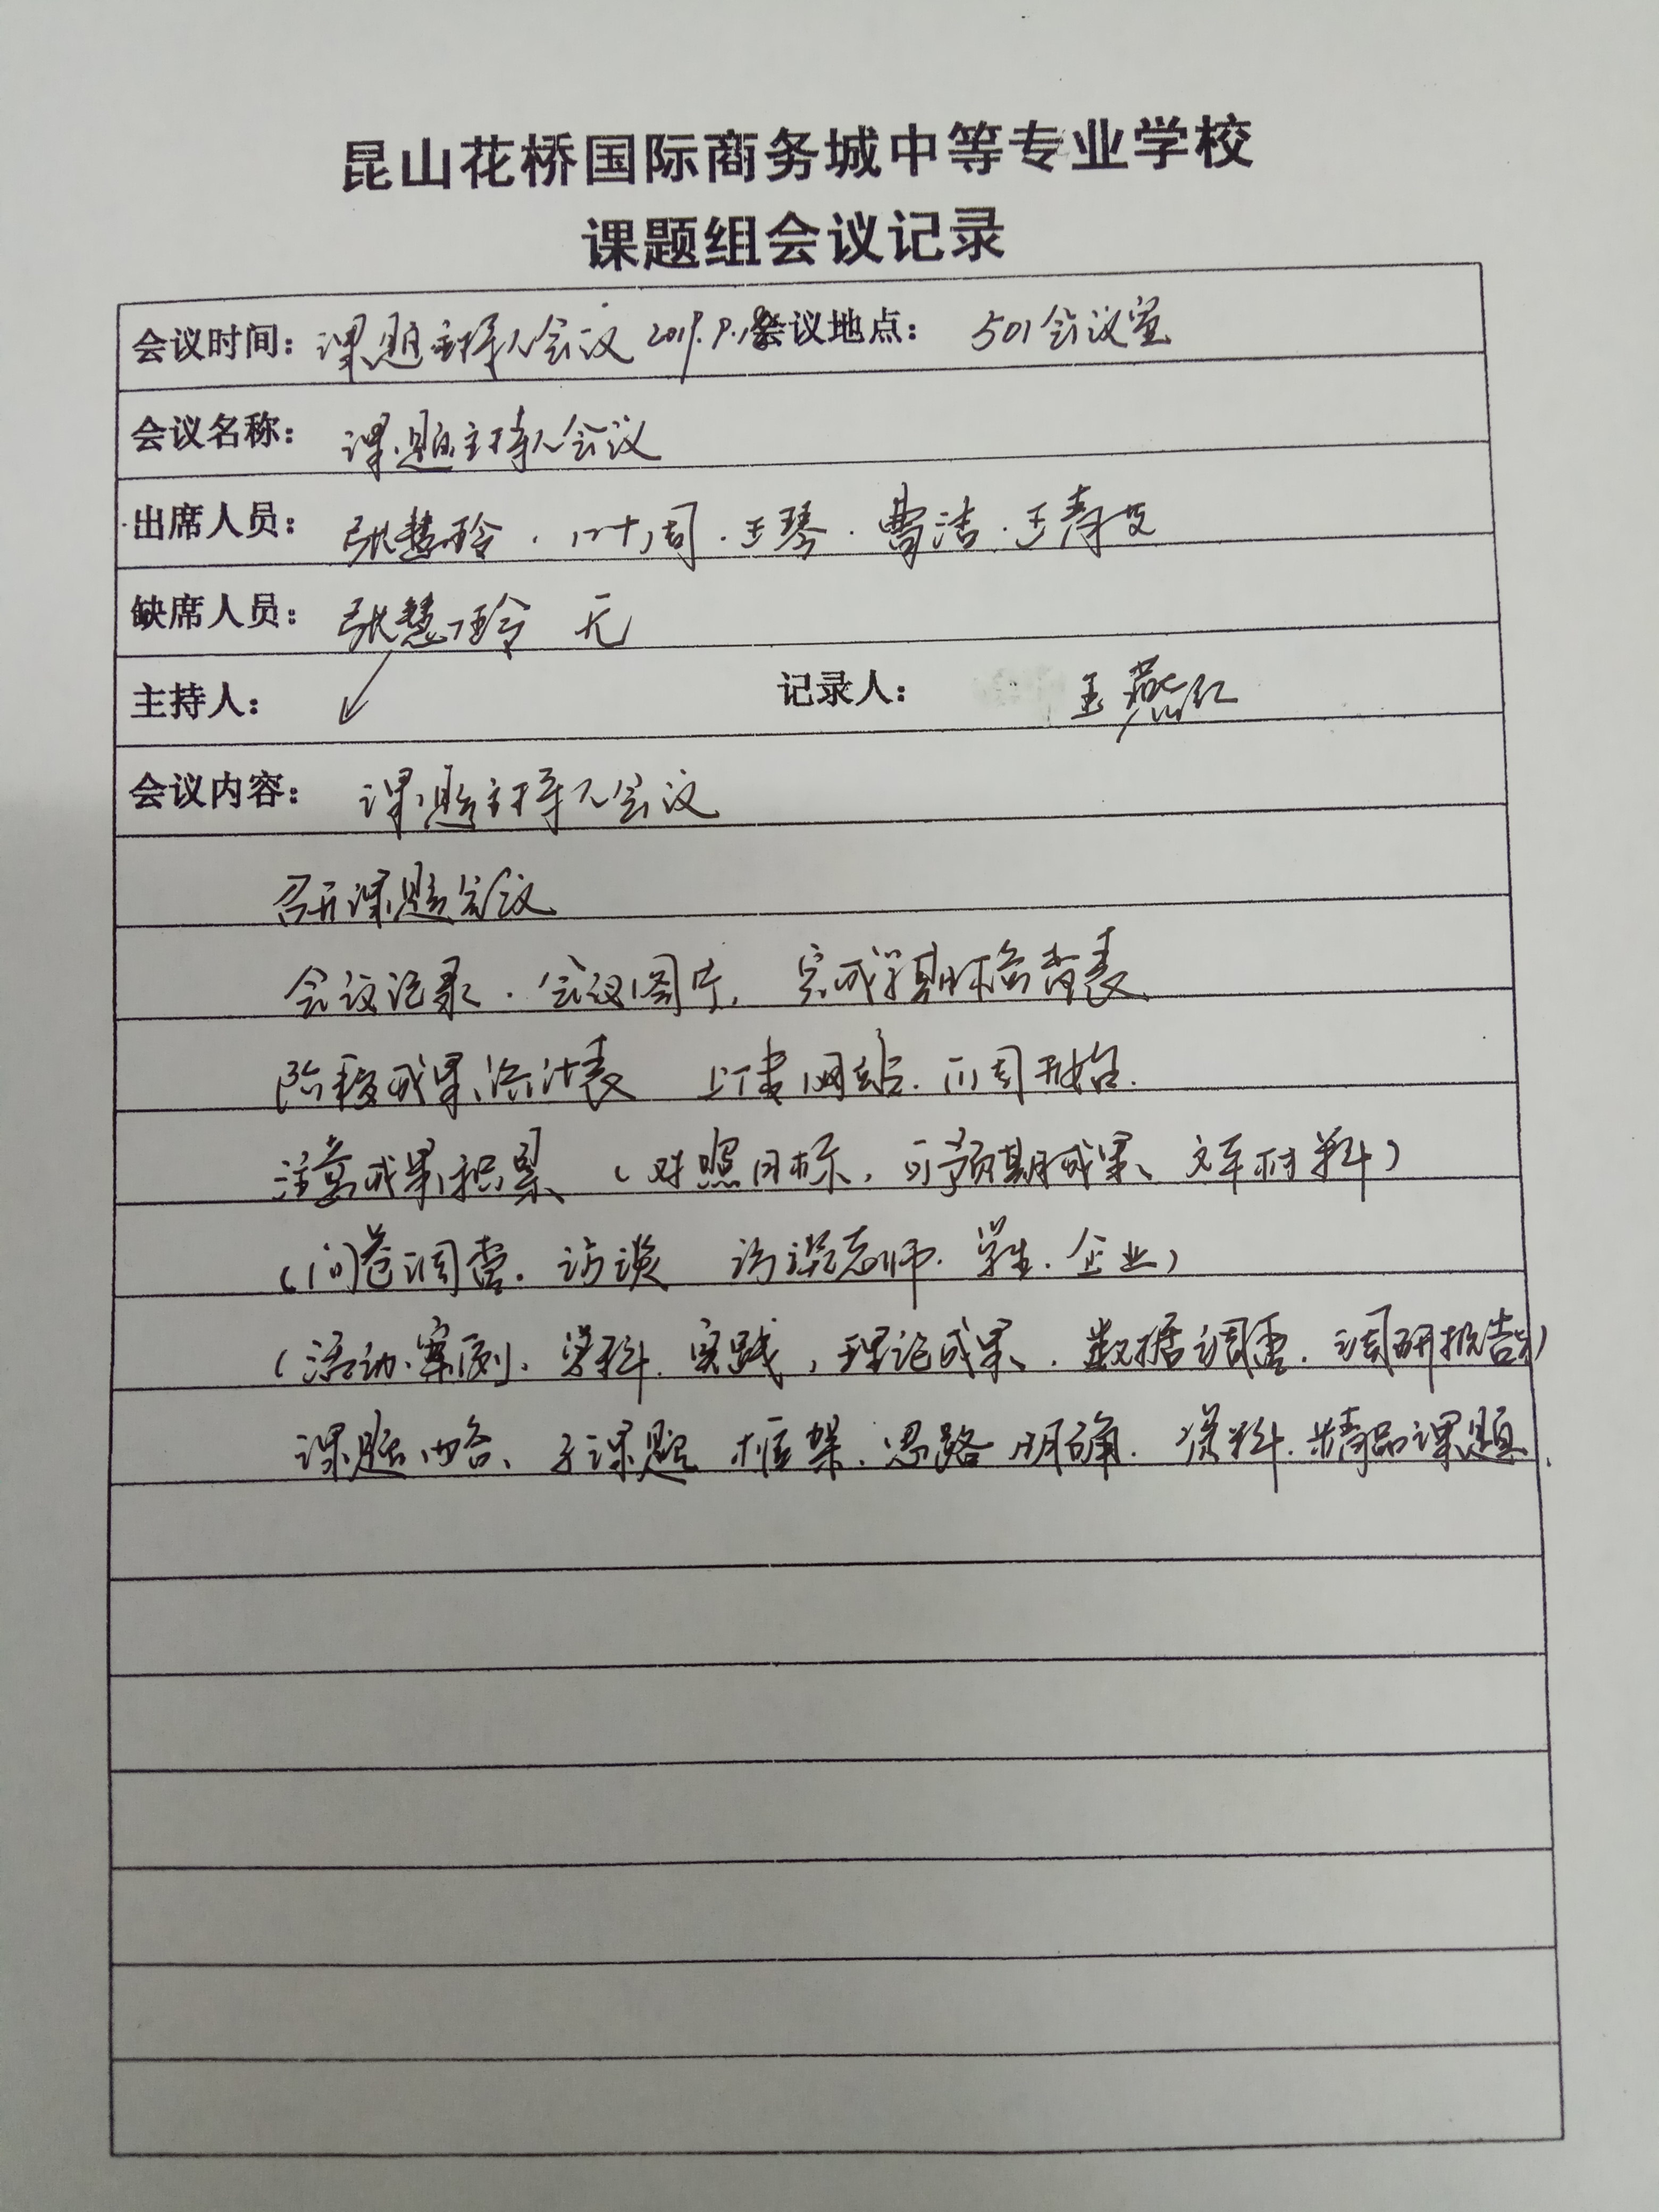 昆山花桥国际商务城中等专业学校
课题组会议记录
会议时间：课题主持人会议 2019.9.18 会议地点： 501会议室
会议名称： 课题主持人会议
出席人员： 张慧玲．叶周．王琴．曹洁．王春
缺席人员： 张慧玲 无
主持人： 记录人： 王燕红
会议内容： 课题主持人会议
召开课题会议
会议记录．会议图片、完成学期检查表、
阶段成果统计表 上传网站．下周开始．
注意成果积累（对照目标，预期成果、文本材料）
（问卷调查．访谈 访谈老师．学生．企业）
（活动、案例、学科．实践，理论成果、．数据调查．调研报告）
课题内容、子课题 框架．思路 明确． 材料．精品课题．